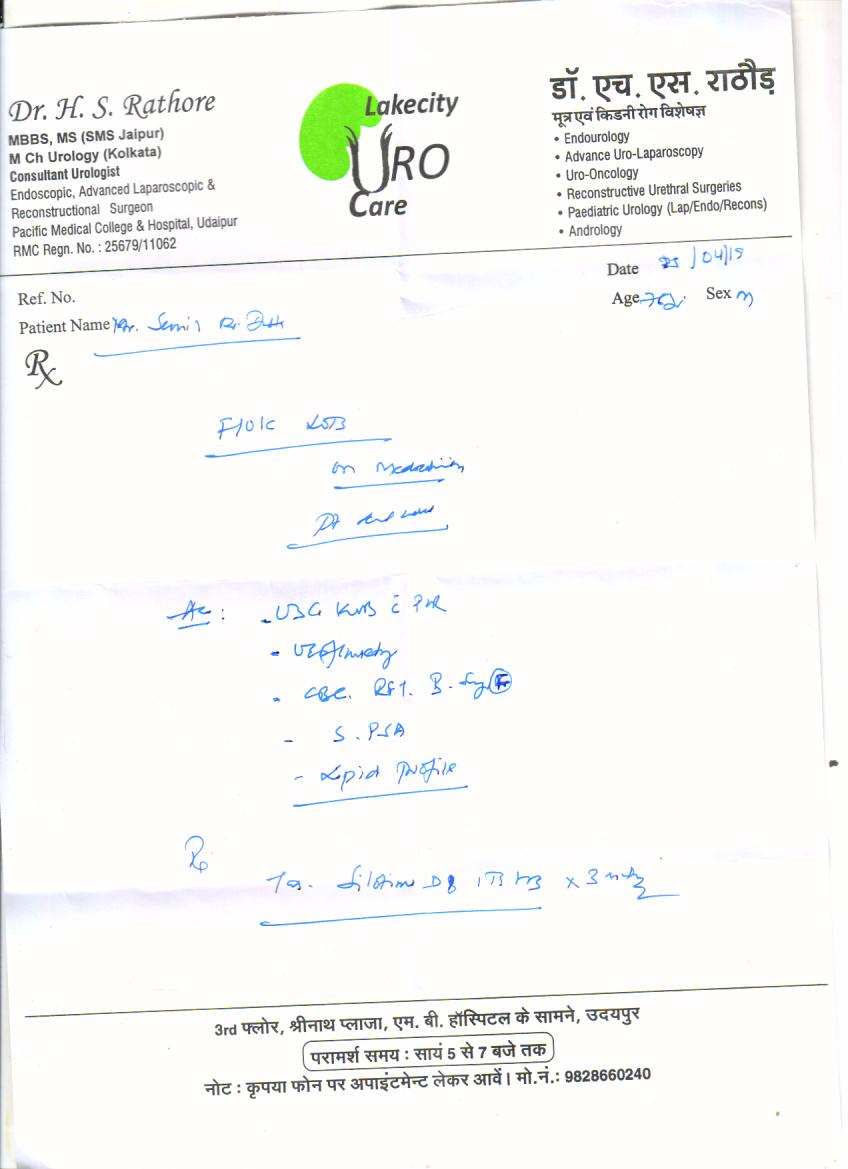 Dr. H. S. Rathore
MBBS, MS (SMS Jaipur)
M Ch Urology (Kolkata)
Consultant Urologist
Endoscopic, Advanced Laparoscopic &
Reconstructional Surgeon
Pacific Medical College & Hospital, Udaipur
RMC Regn. No. : 25679/11062
Lakecity
URO
Care
डॉ. एच. एस. राठौड़
मूत्र एवं किडनी रोग विशेषज्ञ
• Endourology
• Advance Uro-Laparoscopy
• Uro-Oncology
• Reconstructive Urethral Surgeries
• Paediatric Urology (Lap/Endo/Recons)
• Andrology
Date /04/19
Ref. No.
Age Sex M
Patient Name Mr.
Rx
F/O/C
on Medication
- USG KUB c PVR
- Uroflowmetry
- CBC. RFT. B.
- S. PSA
- Lipid Profile
Rx
x 3
3rd फ्लोर, श्रीनाथ प्लाजा, एम. बी. हॉस्पिटल के सामने, उदयपुर
परामर्श समय : सायं 5 से 7 बजे तक
नोट : कृपया फोन पर अपाइंटमेन्ट लेकर आवें। मो.नं.: 9828660240